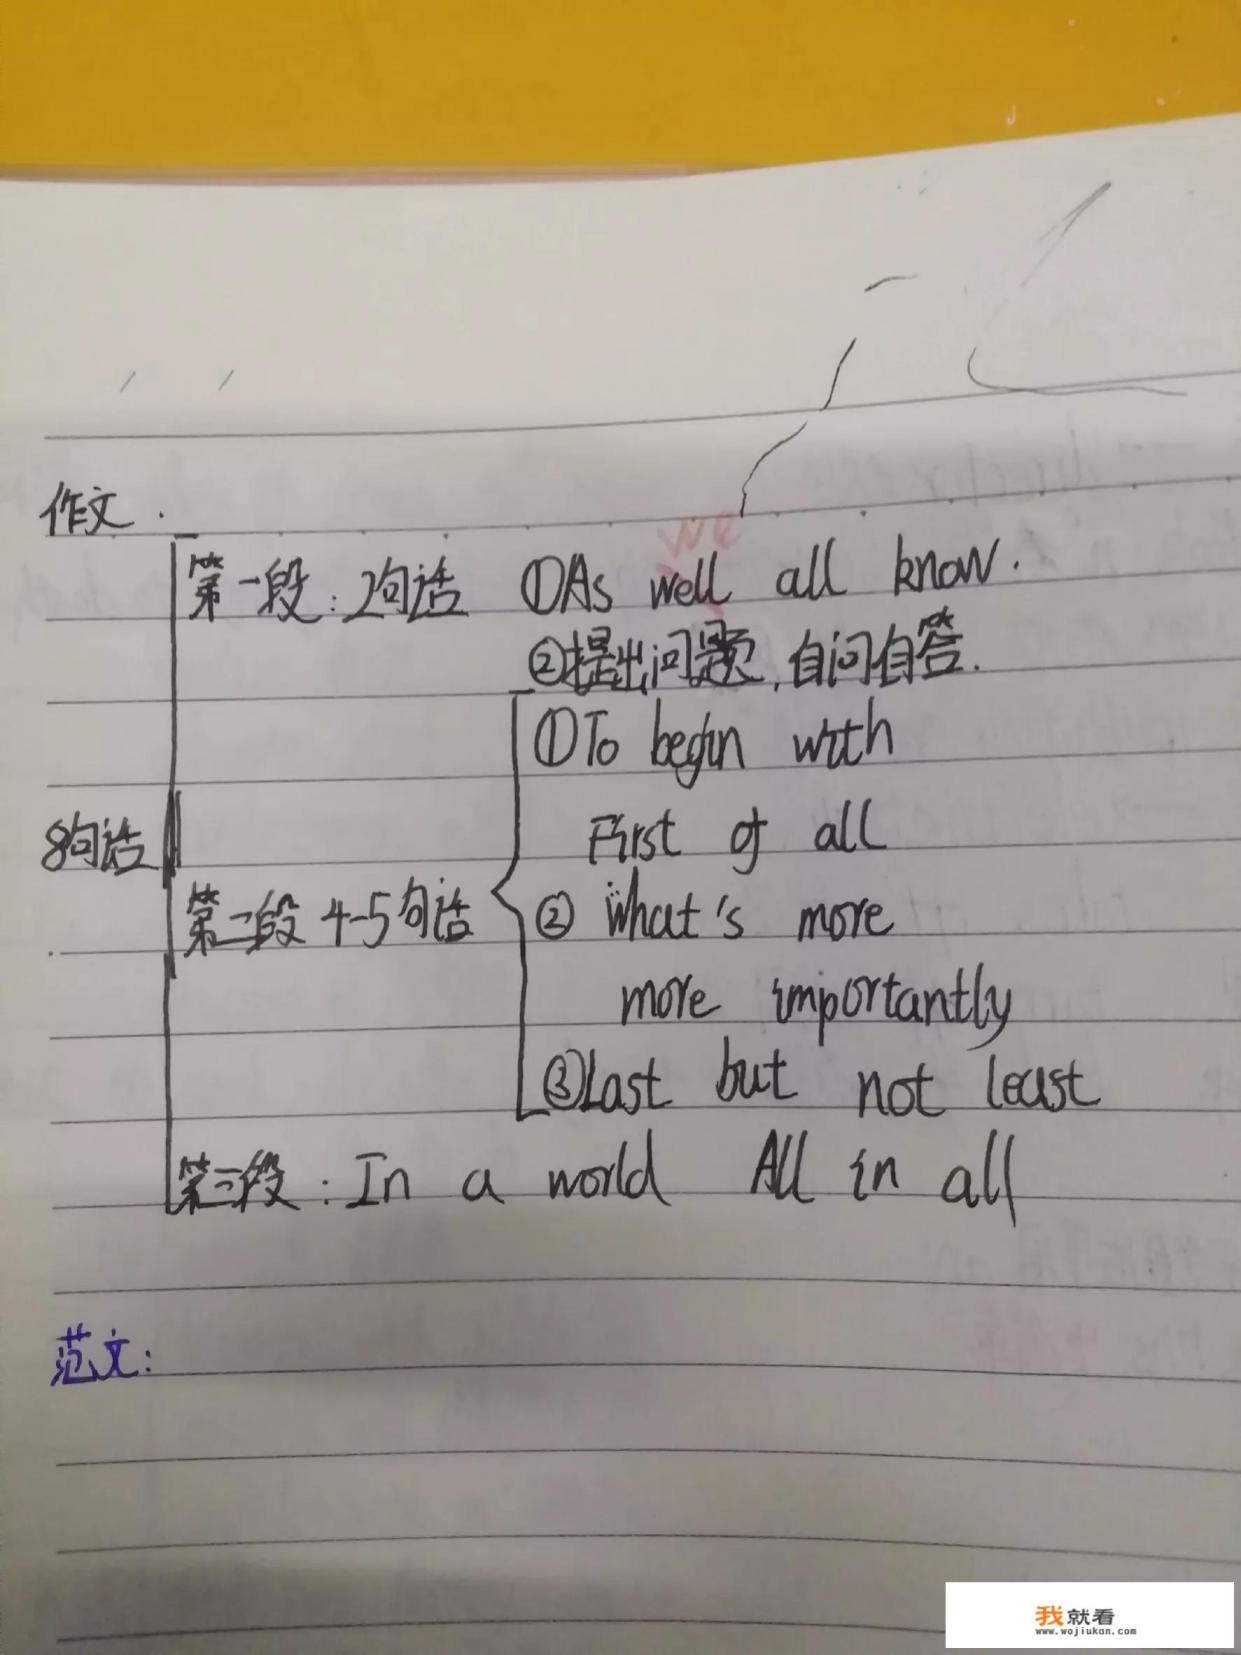 作文.
we
第一段：2句话 ①As well all know.
②提出问题,自问自答.
①To begin with
First of all
8句话
第二段 4-5句话 ② what's more
more importantly
③Last but not least
第三段：In a world All in all
范文：
我就看
www.wojiukan.com